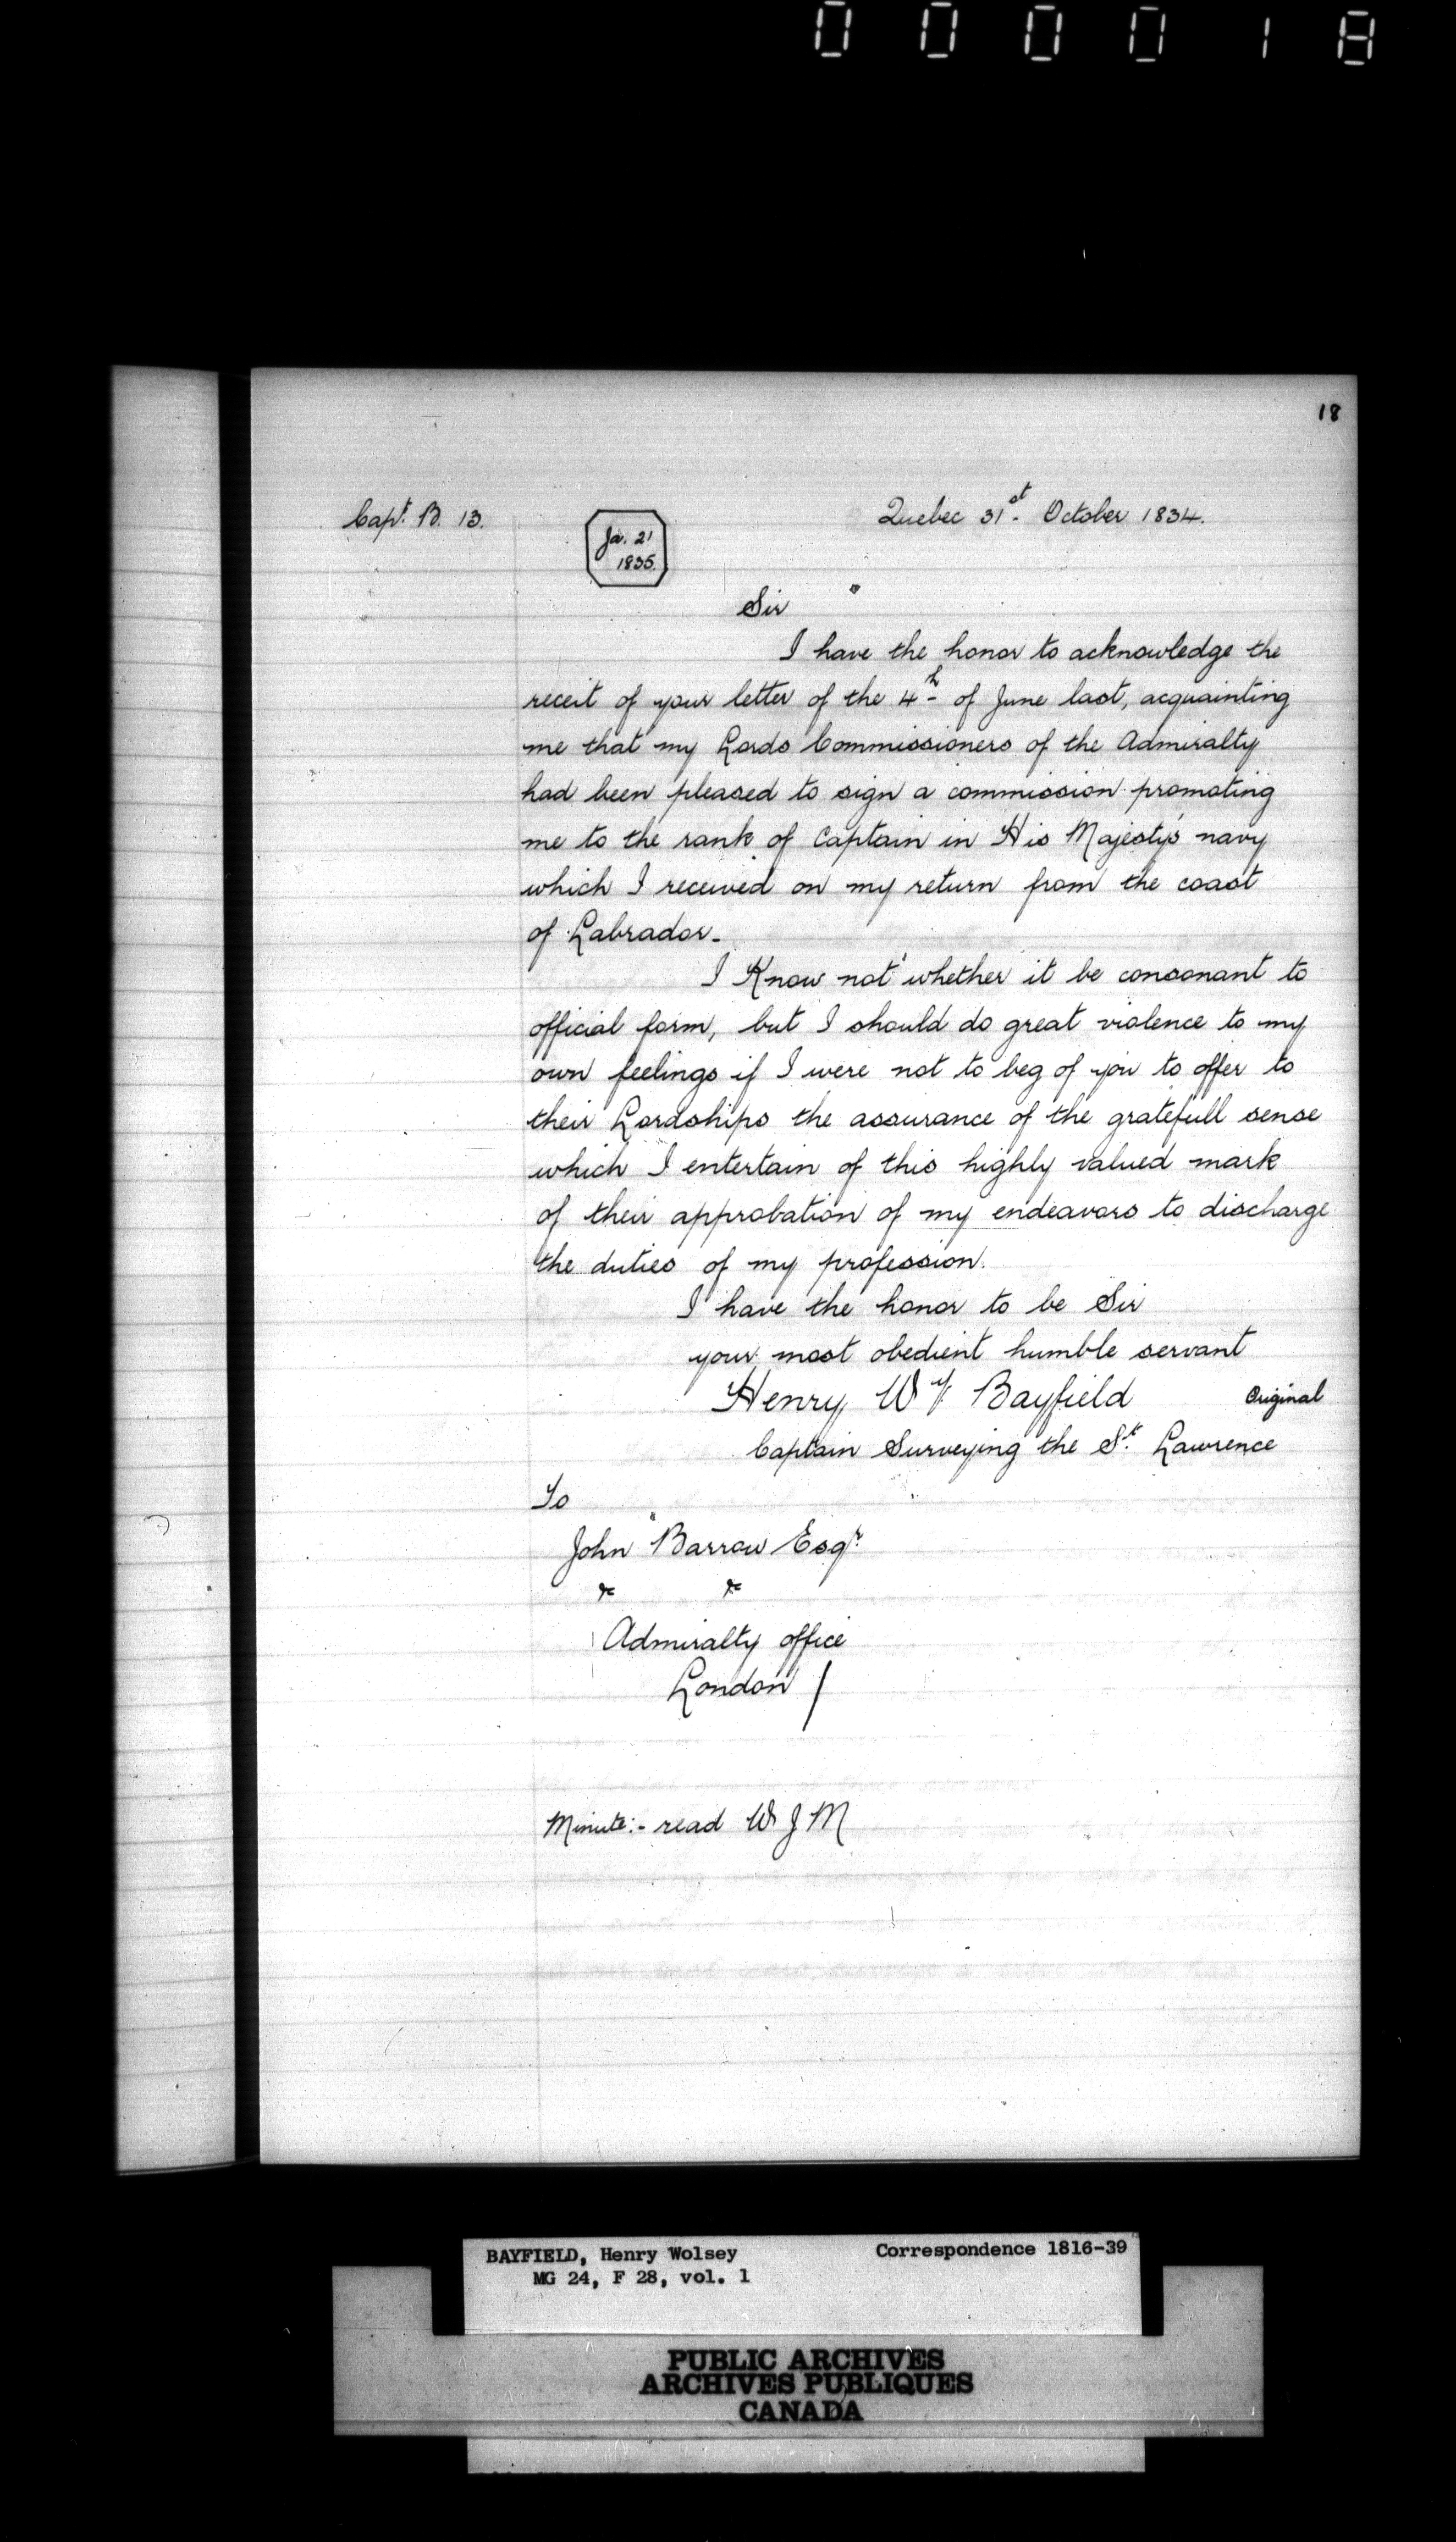 000018
18
Capt. B. 13.
Quebec 31st. October 1834.
Ja. 21
1835.
Sir
I have the honor to acknowledge the
receit of your letter of the 4th of June last, acquainting
me that my Lords Commissioners of the Admiralty
had been pleased to sign a commission promoting
me to the rank of Captain in His Majesty's navy
which I received on my return from the coast
of Labrador.
I Know not whether it be consonant to
official form, but I should do great violence to my
own feelings if I were not to beg of you to offer to
their Lordships the assurance of the gratefull sense
which I entertain of this highly valued mark
of their approbation of my endeavors to discharge
the duties of my profession.
I have the honor to be Sir
your most obedient humble servant
Henry Wy. Bayfield
Original
Captain Surveying the St. Lawrence
To
John Barrow Esqr.
&c &c
Admiralty office
London /
Minute:- read W J M
BAYFIELD, Henry Wolsey
Correspondence 1816-39
MG 24, F 28, vol. 1
PUBLIC ARCHIVES
ARCHIVES PUBLIQUES
CANADA